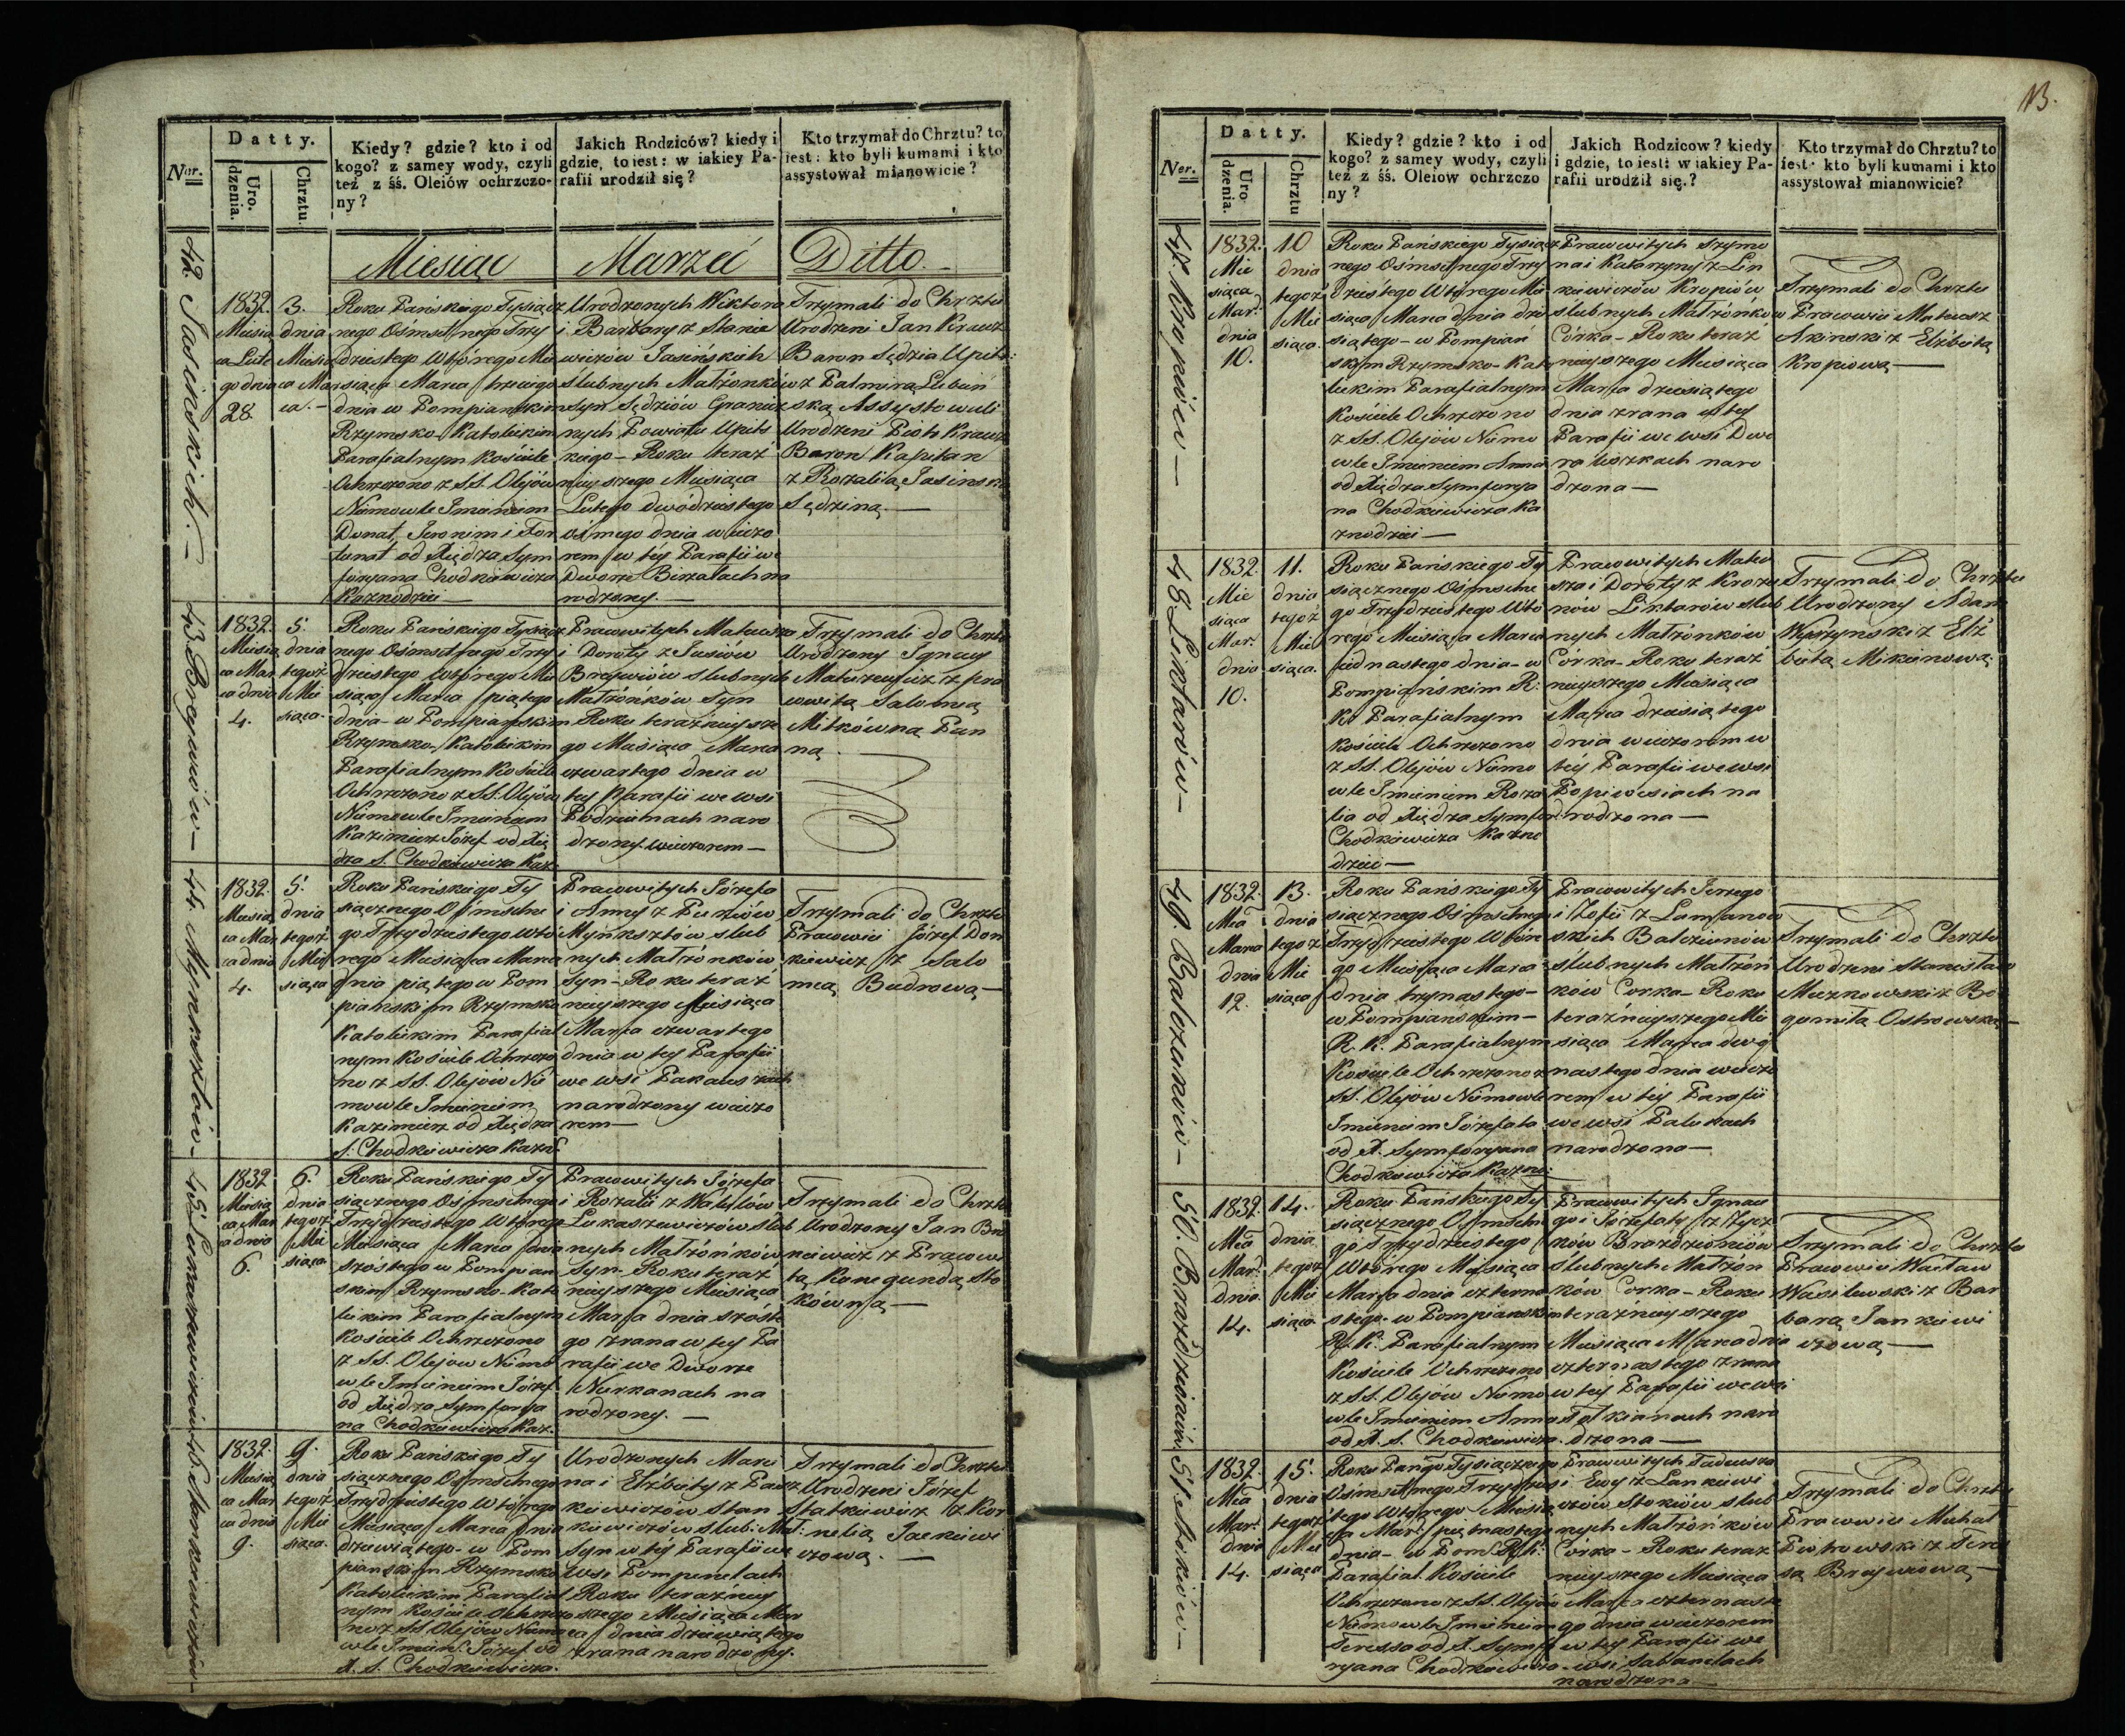 Datty.
Ner.
Uro.
dzenia.
Chrztu.
Kiedy? gdzie? kto i od
kogo? z samey wody, czyli
też z śś. Oleiów ochrzczo-
ny?
Jakich Rodziców? kiedy i
gdzie, to iest: w iakiey Pa-
rafii urodził się?
Kto trzymał do Chrztu? to
iest: kto byli kumami i kto
assystował mianowicie?
Miesiąc Marzec Ditto
42. Jasińskich.
1832.
Miesią
ca Lute
go dnia
28.
3.
dnia
Miesią
ca Mar
ca.
Roku Pańskiego Tysiącz
nego Ośmsetnego Trzy
dziestego Wtórego Mie
siąca Marca trzeciego
dnia w Pompiańskim
Rzymsko-Katolickim
Parafialnym Kościele
Ochrzczono z SS. Olejów
Niemowle Imieniem
Donat, Jeronim i For
tunat od Xiędza Sym
foryana Chodkiewicza
Kaznodziei
Urodzonych Wiktora
i Barbary z Stanie
wiczów Jasińskich
Ślubnych Małżonków
Syn Sędziów Granicz
nych Powiatu Upits
kiego - Roku teraź
niejszego Miesiąca
Lutego dwódziestego
ósmego dnia wieczo
rem w tej Parafii we
Dworze Birżałach na
rodzony.
Trzymali do Chrztu
Urodzeni Jan Krausz
Baron Sędzia Upits:
z Palmirą Lebuń
ską Assystowali
Urodzeni Piotr Krausz
Baron Kapitan
z Rozalią Jasińską
Sędziną.
43. Brejwiów
1832.
Miesią
ca Mar
ca dnia
4.
5.
dnia
tegoż
Mie
siąca.
Roku Pańskiego Tysiącz
nego Ośmsetnego Trzy
dziestego Wtórego Mie
siąca Marca piątego
dnia - w Pompiańskim
Rzymsko-Katolickim
Parafialnym Kościele
Ochrzczono z SS. Olejów
Niemowle Imieniem
Kazimierz Józef od Xię
dza S. Chodkiewicza Kaz:
Pracowitych Mateusza
i Doroty z Susiów
Brejwiów Slubnych
Małżonków Syn
Roku teraźniejsze
go Miesiąca Marca
czwartego dnia w
tej Parafii we wsi
Podziunach naro
dzony wieczorem
Trzymali do Chrztu
Urodzony Ignacy
Matuzewicz z pra
cowitą Salomią
Mitkówną Pan
ną.
44. Mynksztów
1832.
Miesią
ca Mar
ca dnia
4.
5.
dnia
tegoż
Mie
siąca
Roku Pańskiego Ty
siącznego Ośmsetne
go Trzydziestego Wtó
rego Miesiąca Marca
dnia piątego w Pom
piańskim Rzymsko
Katolickim Parafial
nym Kościele Ochrzczo
no z SS. Olejów Nie
mowle Imieniem
Kazimierz od Xiędza
S. Chodkiewicza Kazn:
Pracowitych Józefa
i Anny z Purziów
Mynksztów slub
nych Małżonków
Syn - Roku teraź
niejszego Miesiąca
Marca czwartego
dnia w tej Parafii
we wsi Pakauszach
narodzony wieczo
rem
Trzymali do Chrztu
Pracowici Józef Don
kiewicz z Salo
meą Budrową
45. Łukaszewiczów
1832
Miesią
ca Mar
ca dnia
6.
6.
dnia
tegoż
Mie
siąca
Roku Pańskiego Ty
siącznego Ośmsetnego
Trzydziestego Wtorego
Miesiąca Marca dnia
szóstego w Pompiań
skim Rzymsko-Kato
lickim Parafialnym
Kościele Ochrzczono
z SS. Olejów Niemo
wle Imieniem Józef
od Xiędza Symforya
na Chodkiewicza Kaz.
Pracowitych Józefa
i Rozalii z Watylów
Łukaszewiczów slub
nych Małżonków
Syn - Roku teraź
niejszego Miesiąca
Marca dnia szóste
go zrana w tej Pa
rafii we Dworze
Nurkanach na
rodzony.
Trzymali do Chrztu
Urodzony Jan Bu
niewicz z Pracowi
tą Konegundą Sto
kówną
46. Stankiewiczów
1832.
Miesią
ca Mar
ca dnia
9.
9.
dnia
tegoż
Mie
siąca.
Roku Pańskiego Ty
siącznego Ośmsetnego
Trzydziestego Wtórego
Miesiąca Marca dnia
dziewiątego - w Pom
piańskim Rzymsko
Katolickim Parafial
nym Kościele Ochrzczo
no z SS. Olejów Niemo
wle Imien: Józef od
X. S. Chodkiewicza.
Urodzonych Marci
na i Elżbiety z Pacz
kiewiczów Stan
kiewiczów slub: Mał:
Syn w tej Parafii we
Wsi Pompinelach
Roku teraźniej
szego Miesiąca Mar
ca dnia dziewiątego
zrana narodzony.
Trzymali do Chrztu
Urodzeni Józef
Statkiewicz z Kor
nelią Jackiewi
czową.
13.
Datty.
Ner.
Uro
dzenia.
Chrztu
Kiedy? gdzie? kto i od
kogo? z samey wody, czyli
też z śś. Oleiow ochrzczo
ny?
Jakich Rodzicow? kiedy
i gdzie, to iest: w iakiey Pa-
rafii urodził się.?
Kto trzymał do Chrztu? to
iest: kto byli kumami i kto
assystował mianowicie?
47. Kropiów
1832.
Mie
siąca
Mar.
dnia
10.
10
dnia
tegoż
Mie
siąca.
Roku Pańskiego Tysiącz
nego Ośmsetnego Trzy
dziestego Wtórego Mie
siąca Marca dnia dzie
siątego - w Pompiań
skim Rzymsko-Kato
lickim Parafialnym
Kościele Ochrzczono
z SS. Olejów Niemo
wle Imieniem Anna
od Xiędza Symforya
na Chodkiewicza Ka
znodziei
Pracowitych Szymo
na i Katarzyny z Lin
kiewiczów Kropiów
slubnych Małżonków
Córka - Roku teraź
niejszego Miesiąca
Marca dziesiątego
dnia zrana w tej
Parafii we wsi Dwo
rzliszkach naro
dzona
Trzymali do Chrztu
Pracowici Mateusz
Akinski z Elżbietą
Kropiową
48. Liktarów
1832.
Mie
siąca
Mar.
dnia
10.
11.
dnia
tegoż
Mie
siąca.
Roku Pańskiego Ty
siącznego Ośmsetne
go Trzydziestego Wtó
rego Miesiąca Marca
jednastego dnia - w
Pompiańskim R:
K: Parafialnym
Kościele Ochrzczono
z SS. Olejów Niemo
wle Imieniem Roza
lia od Xiędza Symfor:
Chodkiewicza Kazno
dziei
Pracowitych Mateu
sza i Doroty z Krozu
nów Liktarów slub
nych Małżonków
Córka - Roku teraź
niejszego Miesiąca
Marca dziesiątego
dnia wieczorem w
tej Parafii we wsi
Popiwesiach na
rodzona
Trzymali do Chrztu
Urodzony Adam
Wyszyński z Elż
bietą Mikienową.
49. Bałczunów
1832.
Mca
Marca
dnia
12.
13.
dnia
tegoż
Mie
siąca
Roku Pańskiego Ty
siącznego Ośmsetnego
Trzydziestego Wtóre
go Miesiąca Marca
dnia trzynastego -
w Pompiańskim -
R. K. Parafialnym
Kościele Ochrzczono z
SS. Olejów Niemowle
Imieniem Józefata
od X. Symforyana
Chodkiewicza Kazno:
Pracowitych Jerzego
i Zofii z Lamanow
skich Bałcziunów
slubnych Małżon
ków Corka - Roku
teraźniejszego Mie
siąca Marca dwó
nastego dnia wieczo
rem w tej Parafii
we wsi Palukach
narodzona
Trzymali do Chrztu
Urodzeni Stanisław
Muznowski z Bo
gomiłą Ostrowską
50. Brazdziunów
1832.
Mca
Mar.
dnia
14.
14.
dnia
tegoż
Mie
siąca
Roku Pańskiego Ty
siącznego Ośmsetne
go Trzydziestego
Wtórego Miesiąca
Marca dnia czterna
stego - w Pompiańskim
R. K. Parafialnym
Kościele Ochrzczono
z SS. Olejów Niemo
wle Imieniem Anna
od X. S. Chodkiewicza.
Pracowitych Ignac
go i Józefaty z Życz
ków Brazdziuniów
slubnych Małżon
ków Corka - Roku
teraźniejszego
Miesiąca Marca dnia
czternastego zrana
w tej Parafii we wsi
Tolkianach naro
dzona
Trzymali do Chrztu
Pracowici Wacław
Wasilewski z Bar
barą Jankiewi
czową
51. Stokiów
1832.
Mca
Mar.
dnia
14.
15.
dnia
tegoż
Mie
siąca
Roku Pańgo Tysiącznego
Ośmsetnego Trzydzies
tego Wtórego Miesią
ca Mar: piętnastego
dnia - w Pom: R: K:
Parafial. Kościele
Ochrzczono z SS. Olejów
Niemowle Imieniem
Teressa od X. Symfo
ryana Chodkiewicza
Pracowitych Tadeusza
i Ewy z Lankiewi
czów Stokiów slub
nych Małżonków
Córka - Roku teraź
niejszego Miesiąca
Marca czternaste
go dnia wieczorem
w tej Parafii we
wsi Sabanelach
narodzona
Trzymali do Chrztu
Pracowici Michał
Piotrowski z Tere
są Brejwiową